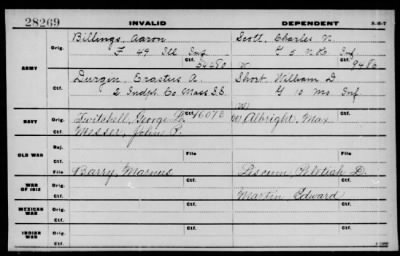 28269 INVALID DEPENDENT 3-6-7
Billings, Aaron Scott, Charles N.
ARMY Orig. F 49 Ill Inf G 5 N.H. Inf
Ctf. Ctf. 9486
Durgin, Erastus A. Short William D
Orig. 2 Indpt. Co Mass S.S. G 10 Mo Inf
Ctf. Ctf.
NAVY Orig. Twitchell, George Albright, Max
Ctf. Messer, John P.
OLD WAR Rej.
Ctf.
File File
WAR OF 1812 Orig. Barry, Marcus Pelatiah D.
Ctf. Martin Edward
MEXICAN WAR Orig.
Ctf.
INDIAN WAR Orig.
Ctf.